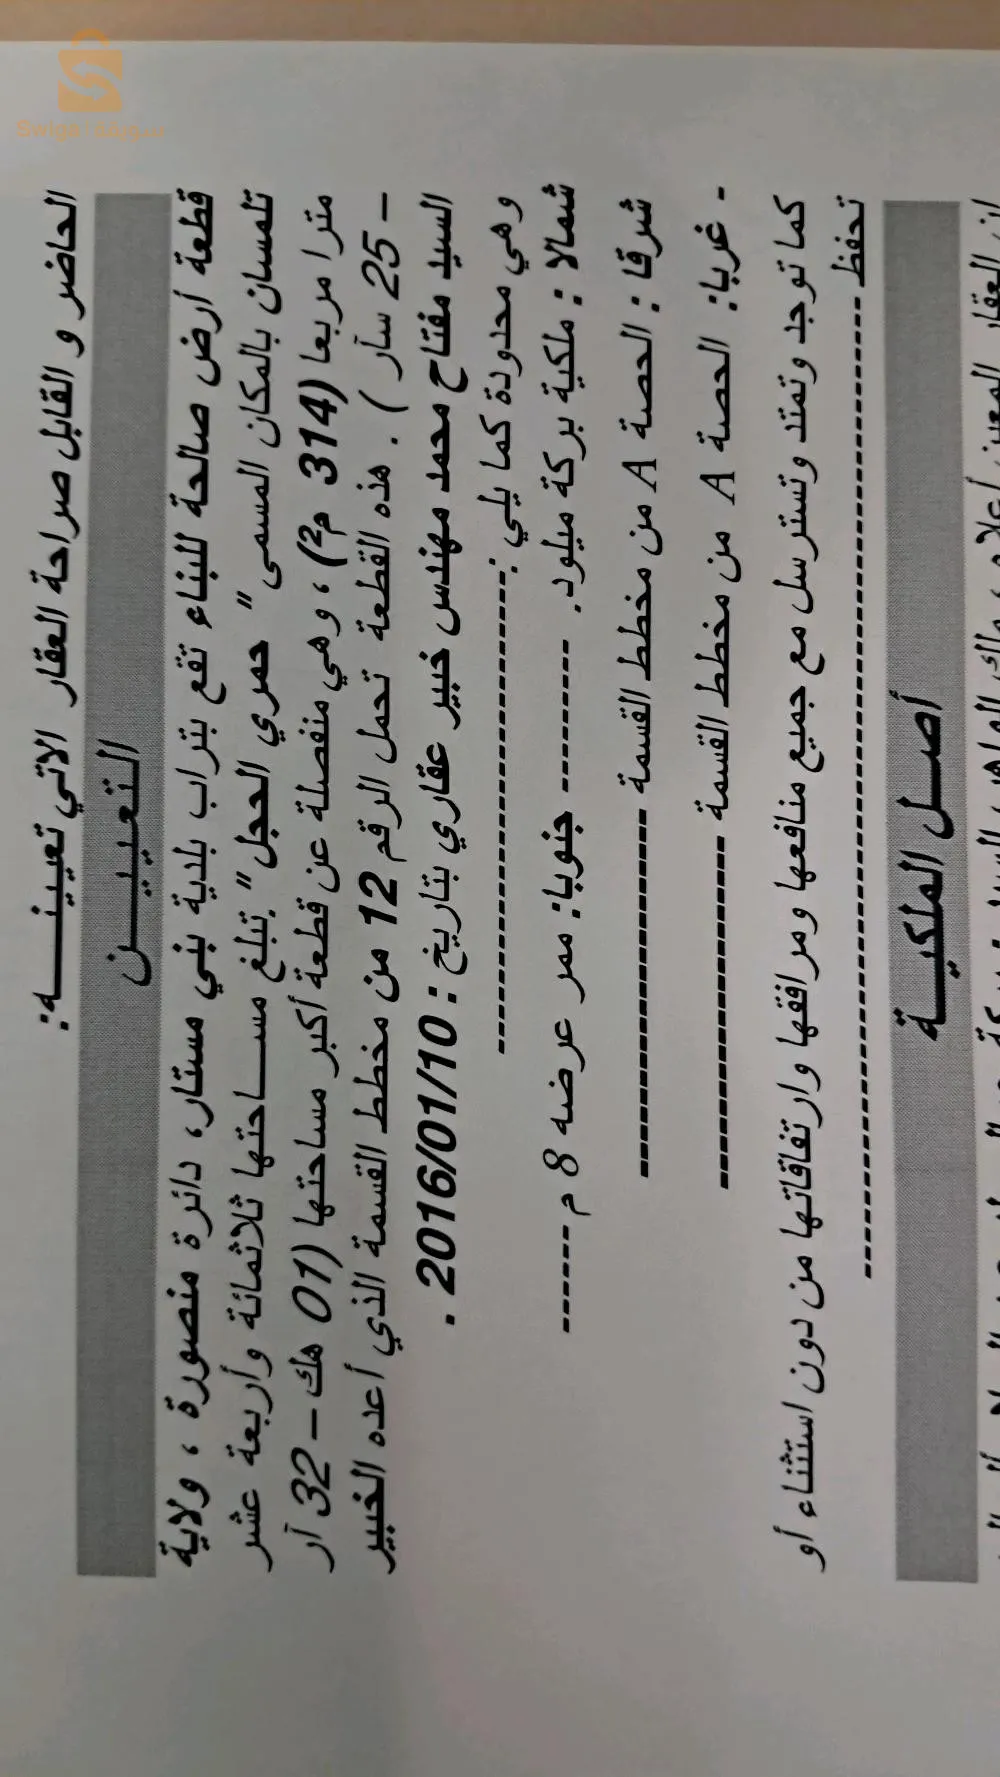 سويقة-Swiga
الحاضر و القابل صراحة العقار الاتي تعيينـــــه:
التعييـــــن
قطعة أرض صالحة للبناء تقع بتراب بلدية بني مستار، دائرة منصورة ، ولاية
تلمسان بالمكان المسمى " حمري الحجل ".تبلغ مســاحتها ثلاثمائة وأربعة عشر
مترا مربعا (314 م²) ، وهي منفصلة عن قطعة أكبر مساحتها (01 هك – 32 آر
– 25 سآر ) . هذه القطعة تحمل الرقم 12 من مخطط القسمة الذي أعده الخبير
السيد مفتاح محمد مهندس خبير عقاري بتاريخ : 2016/01/10 .
وهي محدودة كما يلي :-----------------------------------
شمالا : ملكية بركة ميلود. ----------- جنوبا: ممر عرضه 8 م ------
شرقا : الحصة A من مخطط القسمة --------------------------
- غربا: الحصة A من مخطط القسمة --------------------------
كما توجد وتمتد وتسترسل مع جميع منافعها ومرافقها وارتفاقاتها من دون استثناء أو
تحفظ ----------------------------------------------------------------------
أصــل الملكيــة
ان العقار المعين أعلاه، ملك